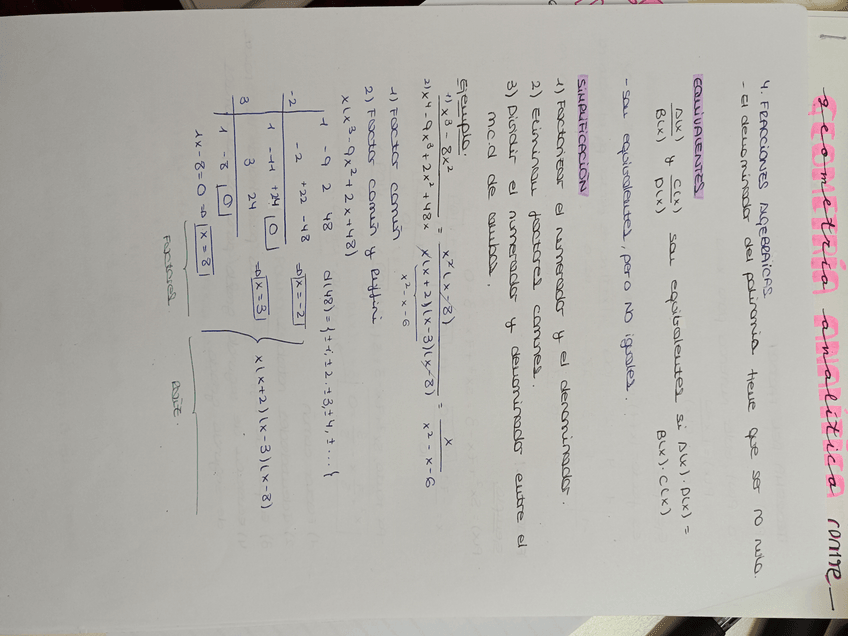 geometría analítica
GEOMETRÍA ANALÍTICA
4. FRACCIONES ALGEBRAICAS
- El denominador del polinomio tiene que ser no nulo.
EQUIVALENTES
A(x)/B(x) y C(x)/D(x) son equivalentes si A(x) · D(x) =
B(x) · C(x)
- Son equivalentes, pero NO iguales.
SIMPLIFICACIÓN
1) Factorizar el numerador y el denominador.
2) Eliminar factores comunes.
3) Dividir el numerador y denominador entre el
m.c.d de ambos.
Ejemplo:
1) x³ - 8x² / 2) x⁴ - 9x³ + 2x² + 48x = x²(x-8) / x(x+2)(x-3)(x-8) = x / x² - x - 6
x² - x - 6
1) Factor común
2) Factor común y Ruffini
x(x³ - 9x² + 2x + 48)
1 -9 2 48 d(48) = {±1, ±2, ±3, ±4, ± ... {
-2 -2 +22 -48 ⇒ x = -2
1 -11 +24 0
3 3 24 ⇒ x = 3
1 -8 0
1x - 8 = 0 ⇒ x = 8
x(x+2)(x-3)(x-8)
Factores